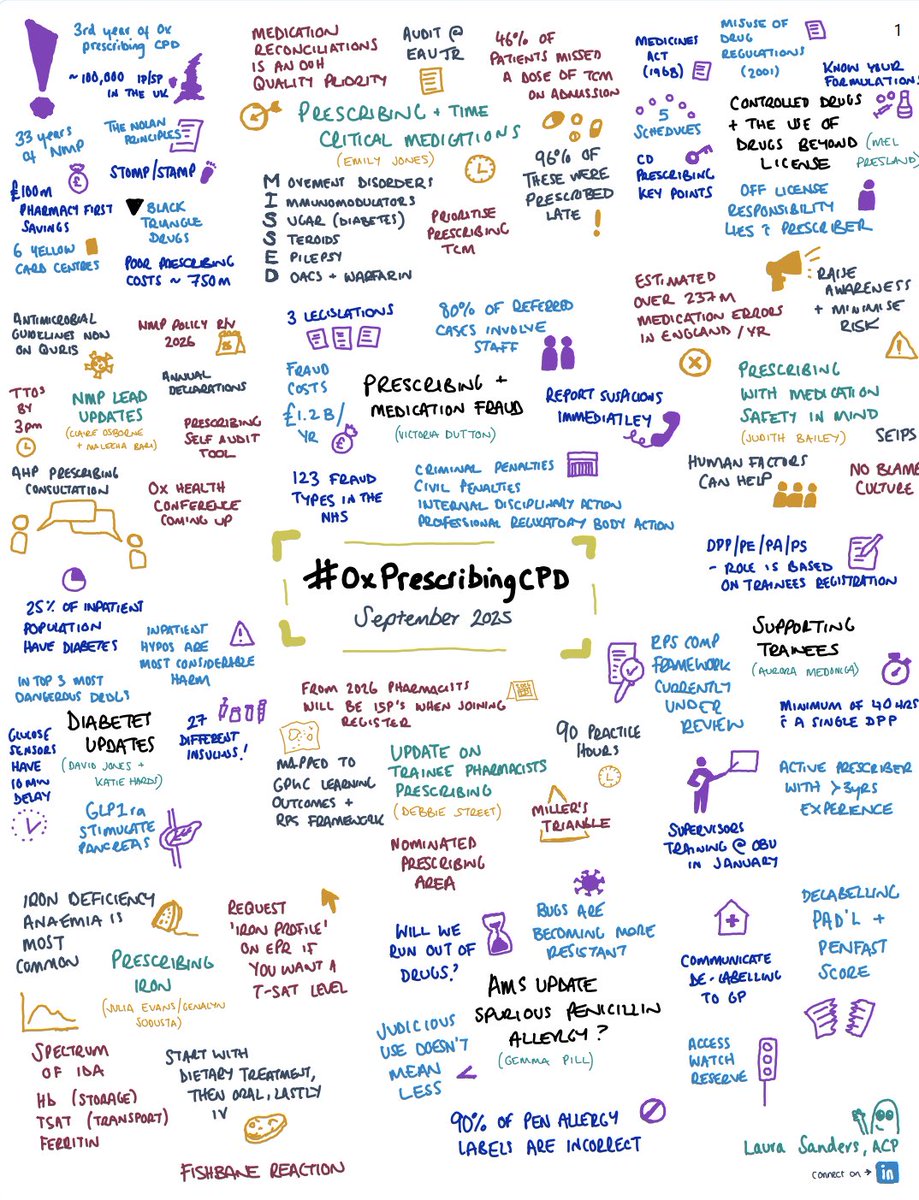 1
3rd year of Ox
prescribing CPD
~100,000 IP/SP
IN THE UK
33 years
of NMP
THE NOLAN
PRINCIPLES
STOMP/STAMP
£100m
PHARMACY FIRST
SAVINGS
BLACK
TRIANGLE
DRUGS
6 YELLOW
CARD CENTRES
POOR PRESCRIBING
COSTS ~ 750M
MEDICATION
RECONCILIATIONS
IS AN OUH
QUALITY PRIORITY
AUDIT @
EAU JR
46% OF
PATIENTS MISSED
A DOSE OF TCM
ON ADMISSION
PRESCRIBING + TIME
CRITICAL MEDICATIONS
(EMILY JONES)
MOVEMENT DISORDERS
IMMUNOMODULATORS
SUGAR (DIABETES)
STEROIDS
EPILEPSY
DOACS + WARFARIN
PRIORITISE
PRESCRIBING
TCM
96% OF
THESE WERE
PRESCRIBED
LATE
MEDICINES
ACT
(1968)
MISUSE OF
DRUG
REGULATIONS
(2001)
KNOW YOUR
FORMULATIONS
5
SCHEDULES
CD
PRESCRIBING
KEY POINTS
CONTROLLED DRUGS
+ THE USE OF
DRUGS BEYOND
LICENSE
(MEL
PRESLAND)
OFF LICENSE
RESPONSIBILITY
LIES c̄ PRESCRIBER
ANTIMICROBIAL
GUIDELINES NOW
ON QURIS
NMP POLICY R/V
2026
TTOS
BY
3pm
NMP LEAD
UPDATES
(CLAIRE OSBORNE
+ MALEEHA BARI)
ANNUAL
DECLARATIONS
PRESCRIBING
SELF AUDIT
TOOL
AHP PRESCRIBING
CONSULTATION
OX HEALTH
CONFERENCE
COMING UP
3 LEGISLATIONS
80% OF REFERRED
CASES INVOLVE
STAFF
FRAUD
COSTS
£1.2B/
YR
PRESCRIBING +
MEDICATION FRAUD
(VICTORIA DUTTON)
REPORT SUSPICIONS
IMMEDIATLEY
123 FRAUD
TYPES IN THE
NHS
CRIMINAL PENALTIES
CIVIL PENALTIES
INTERNAL DISCIPLINARY ACTION
PROFESSIONAL REGULATORY BODY ACTION
ESTIMATED
OVER 237M
MEDICATION ERRORS
IN ENGLAND/YR
RAISE
AWARENESS
+ MINIMISE
RISK
PRESCRIBING
WITH MEDICATION
SAFETY IN MIND
(JUDITH BAILEY)
SEIPS
HUMAN FACTORS
CAN HELP
NO BLAME
CULTURE
#OxPrescribingCPD
September 2025
25% OF INPATIENT
POPULATION
HAVE DIABETES
INPATIENT
HYPOS ARE
MOST CONSIDERABLE
HARM
IN TOP 3 MOST
DANGEROUS DRUGS
GLUCOSE
SENSORS
HAVE
10 MIN
DELAY
DIABETES
UPDATES
(DAVID JONES +
KATIE HARDS)
27
DIFFERENT
INSULINS!
GLP1ra
STIMULATE
PANCREAS
FROM 2026 PHARMACISTS
WILL BE ISP'S WHEN JOINING
REGISTER
MAPPED TO
GPhC LEARNING
OUTCOMES +
RPS FRAMEWORK
UPDATE ON
TRAINEE PHARMACISTS
PRESCRIBING
(DEBBIE STREET)
90 PRACTICE
HOURS
MILLER'S
TRIANGLE
NOMINATED
PRESCRIBING
AREA
DPP/PE/PA/PS
- ROLE IS BASED
ON TRAINEES REGISTRATION
RPS COMP
FRAMEWORK
CURRENTLY
UNDER
REVIEW
SUPPORTING
TRAINEES
(AURORA MEDONICA)
MINIMUM OF 40 HRS
c̄ A SINGLE DPP
ACTIVE PRESCRIBER
WITH >3yrs
EXPERIENCE
SUPERVISORS
TRAINING @ OBU
IN JANUARY
IRON DEFICIENCY
ANAEMIA IS
MOST
COMMON
PRESCRIBING
IRON
(JULIA EVANS/GENALYN
SODUSTA)
REQUEST
'IRON PROFILE'
ON EPR IF
YOU WANT A
T-SAT LEVEL
SPECTRUM
OF IDA
Hb (STORAGE)
TSAT (TRANSPORT)
FERRITIN
START WITH
DIETARY TREATMENT,
THEN ORAL, LASTLY
IV
FISHBANE REACTION
WILL WE
RUN OUT OF
DRUGS?
BUGS ARE
BECOMING MORE
RESISTANT
AMS UPDATE
SPURIOUS PENICILLIN
ALLERGY?
(GEMMA PILL)
JUDICIOUS
USE DOESN'T
MEAN
LESS <
90% OF PEN ALLERGY
LABELS ARE INCORRECT
DELABELLING
PAD'L +
PENFAST
SCORE
COMMUNICATE
DE-LABELLING
TO GP
ACCESS
WATCH
RESERVE
Laura Sanders, ACP
connect on → in